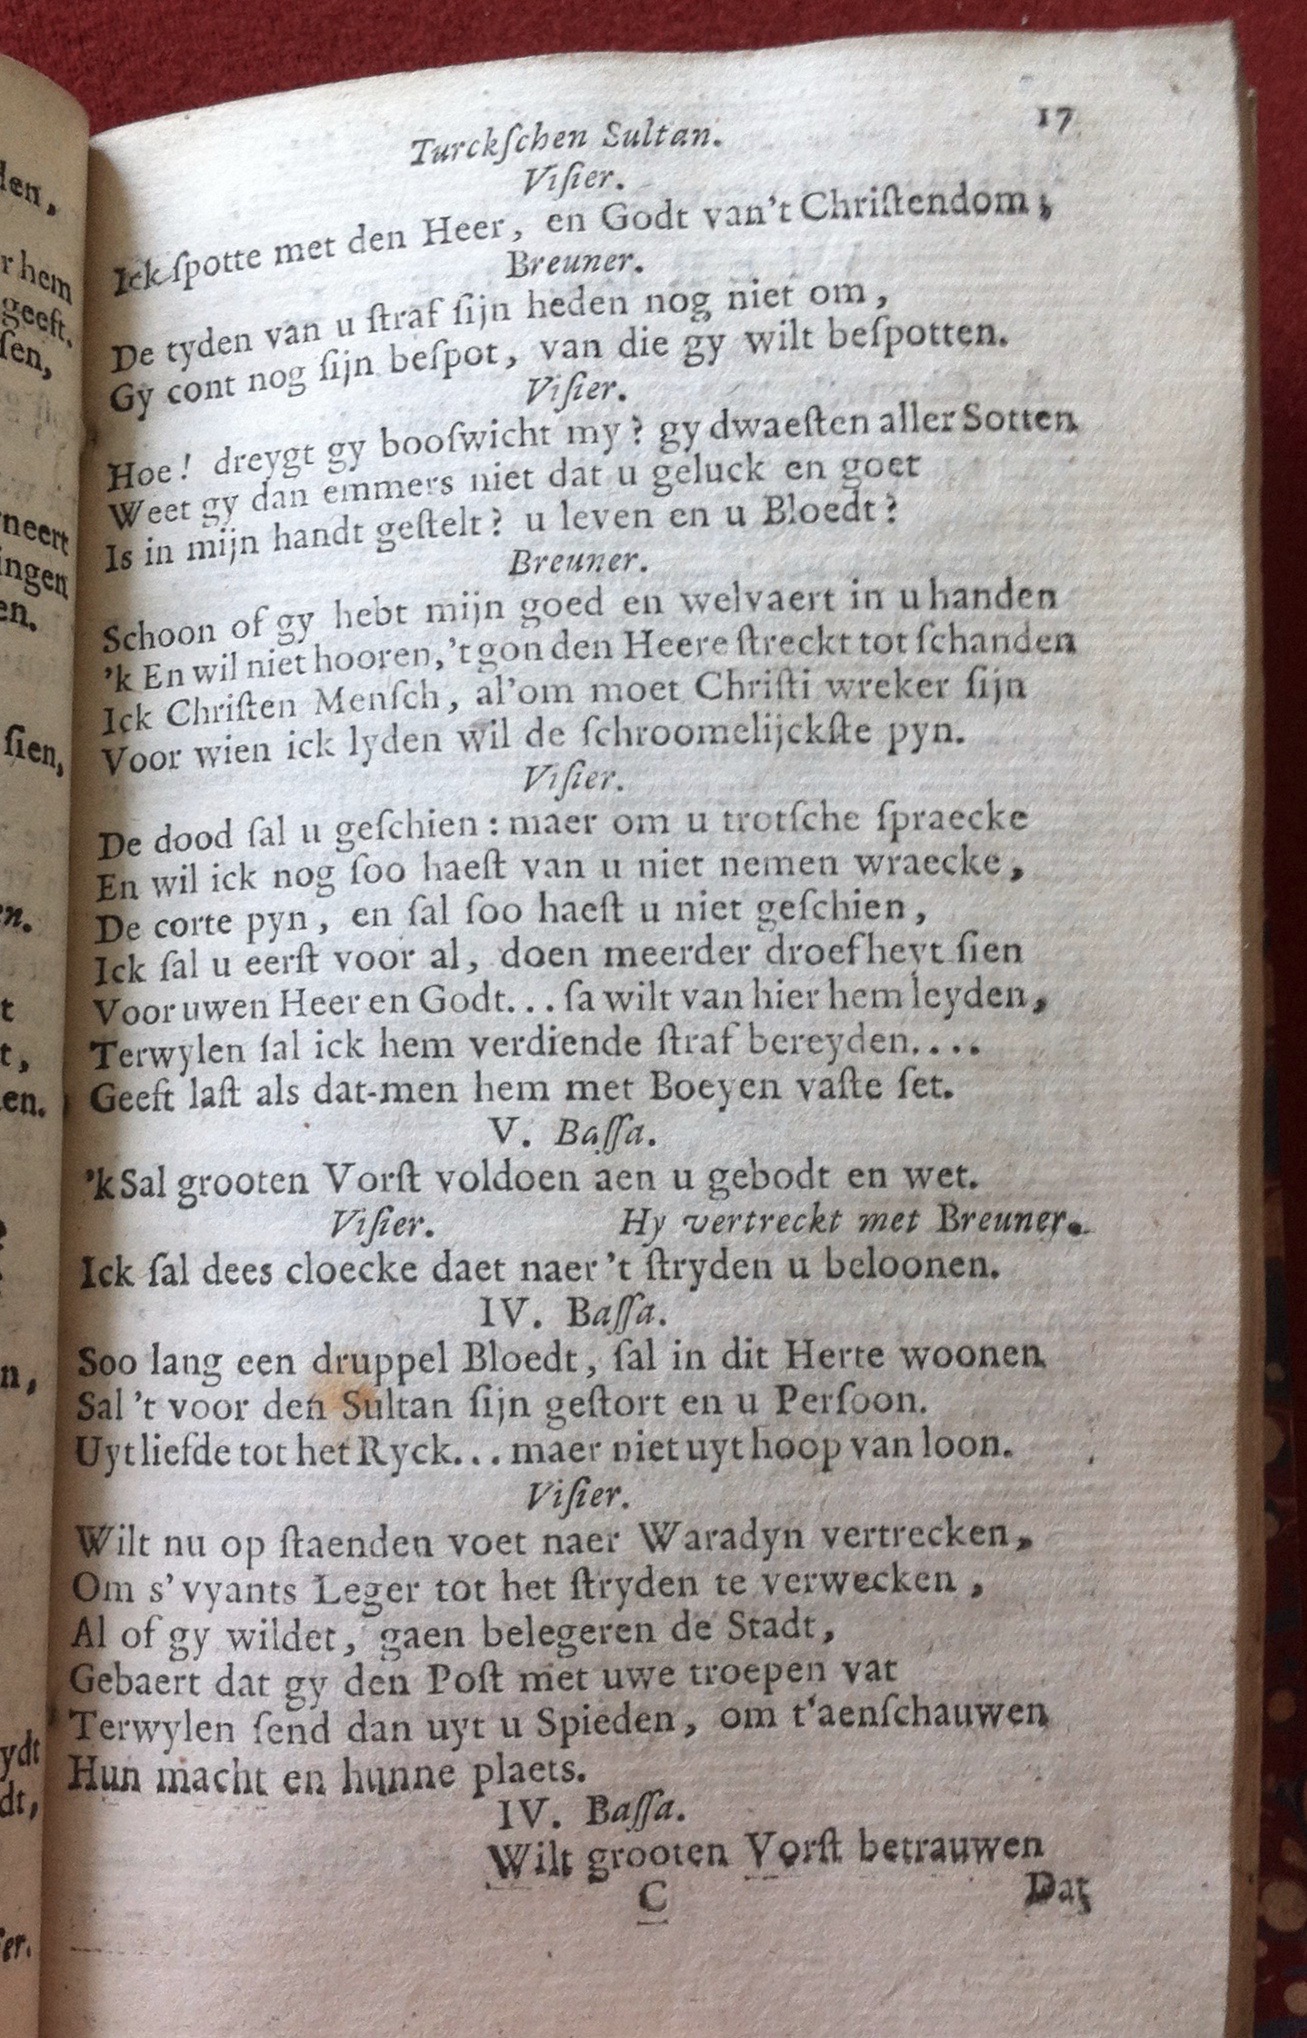 len,
r hem
geeft.
ſen,
neert
ingen
en.
ſien,
en.
t
t,
en.
n,
ydt
dt,
er.
Turckſchen Sultan. 17
Viſier.
Ick ſpotte met den Heer, en Godt van't Chriſtendom;
Breuner.
De tyden van u ſtraf ſijn heden nog niet om,
Gy cont nog ſijn beſpot, van die gy wilt beſpotten.
Viſier.
Hoe! dreygt gy booſwicht my? gy dwaeſten aller Sotten
Weet gy dan emmers niet dat u geluck en goet
Is in mijn handt geſtelt? u leven en u Bloedt?
Breuner.
Schoon of gy hebt mijn goed en welvaert in u handen
'k En wil niet hooren, 't gon den Heere ſtreckt tot ſchanden
Ick Chriſten Menſch, al'om moet Chriſti wreker ſijn
Voor wien ick lyden wil de ſchroomelijckſte pyn.
Viſier.
De dood ſal u geſchien: maer om u trotſche ſpraecke
En wil ick nog ſoo haeſt van u niet nemen wraecke,
De corte pyn, en ſal ſoo haeſt u niet geſchien,
Ick ſal u eerſt voor al, doen meerder droefheyt ſien
Voor uwen Heer en Godt... ſa wilt van hier hem leyden,
Terwylen ſal ick hem verdiende ſtraf bereyden....
Geeft laſt als dat-men hem met Boeyen vaſte ſet.
V. Baſſa.
'k Sal grooten Vorſt voldoen aen u gebodt en wet.
Viſier. Hy vertreckt met Breuner.
Ick ſal dees cloecke daet naer 't ſtryden u beloonen.
IV. Baſſa.
Soo lang een druppel Bloedt, ſal in dit Herte woonen
Sal 't voor den Sultan ſijn geſtort en u Perſoon.
Uyt liefde tot het Ryck... maer niet uyt hoop van loon.
Viſier.
Wilt nu op ſtaenden voet naer Waradyn vertrecken,
Om s'vyants Leger tot het ſtryden te verwecken,
Al of gy wildet, gaen belegeren de Stadt,
Gebaert dat gy den Poſt met uwe troepen vat
Terwylen ſend dan uyt u Spieden, om t'aenſchauwen
Hun macht en hunne plaets.
IV. Baſſa.
Wilt grooten Vorſt betrauwen
C Dat